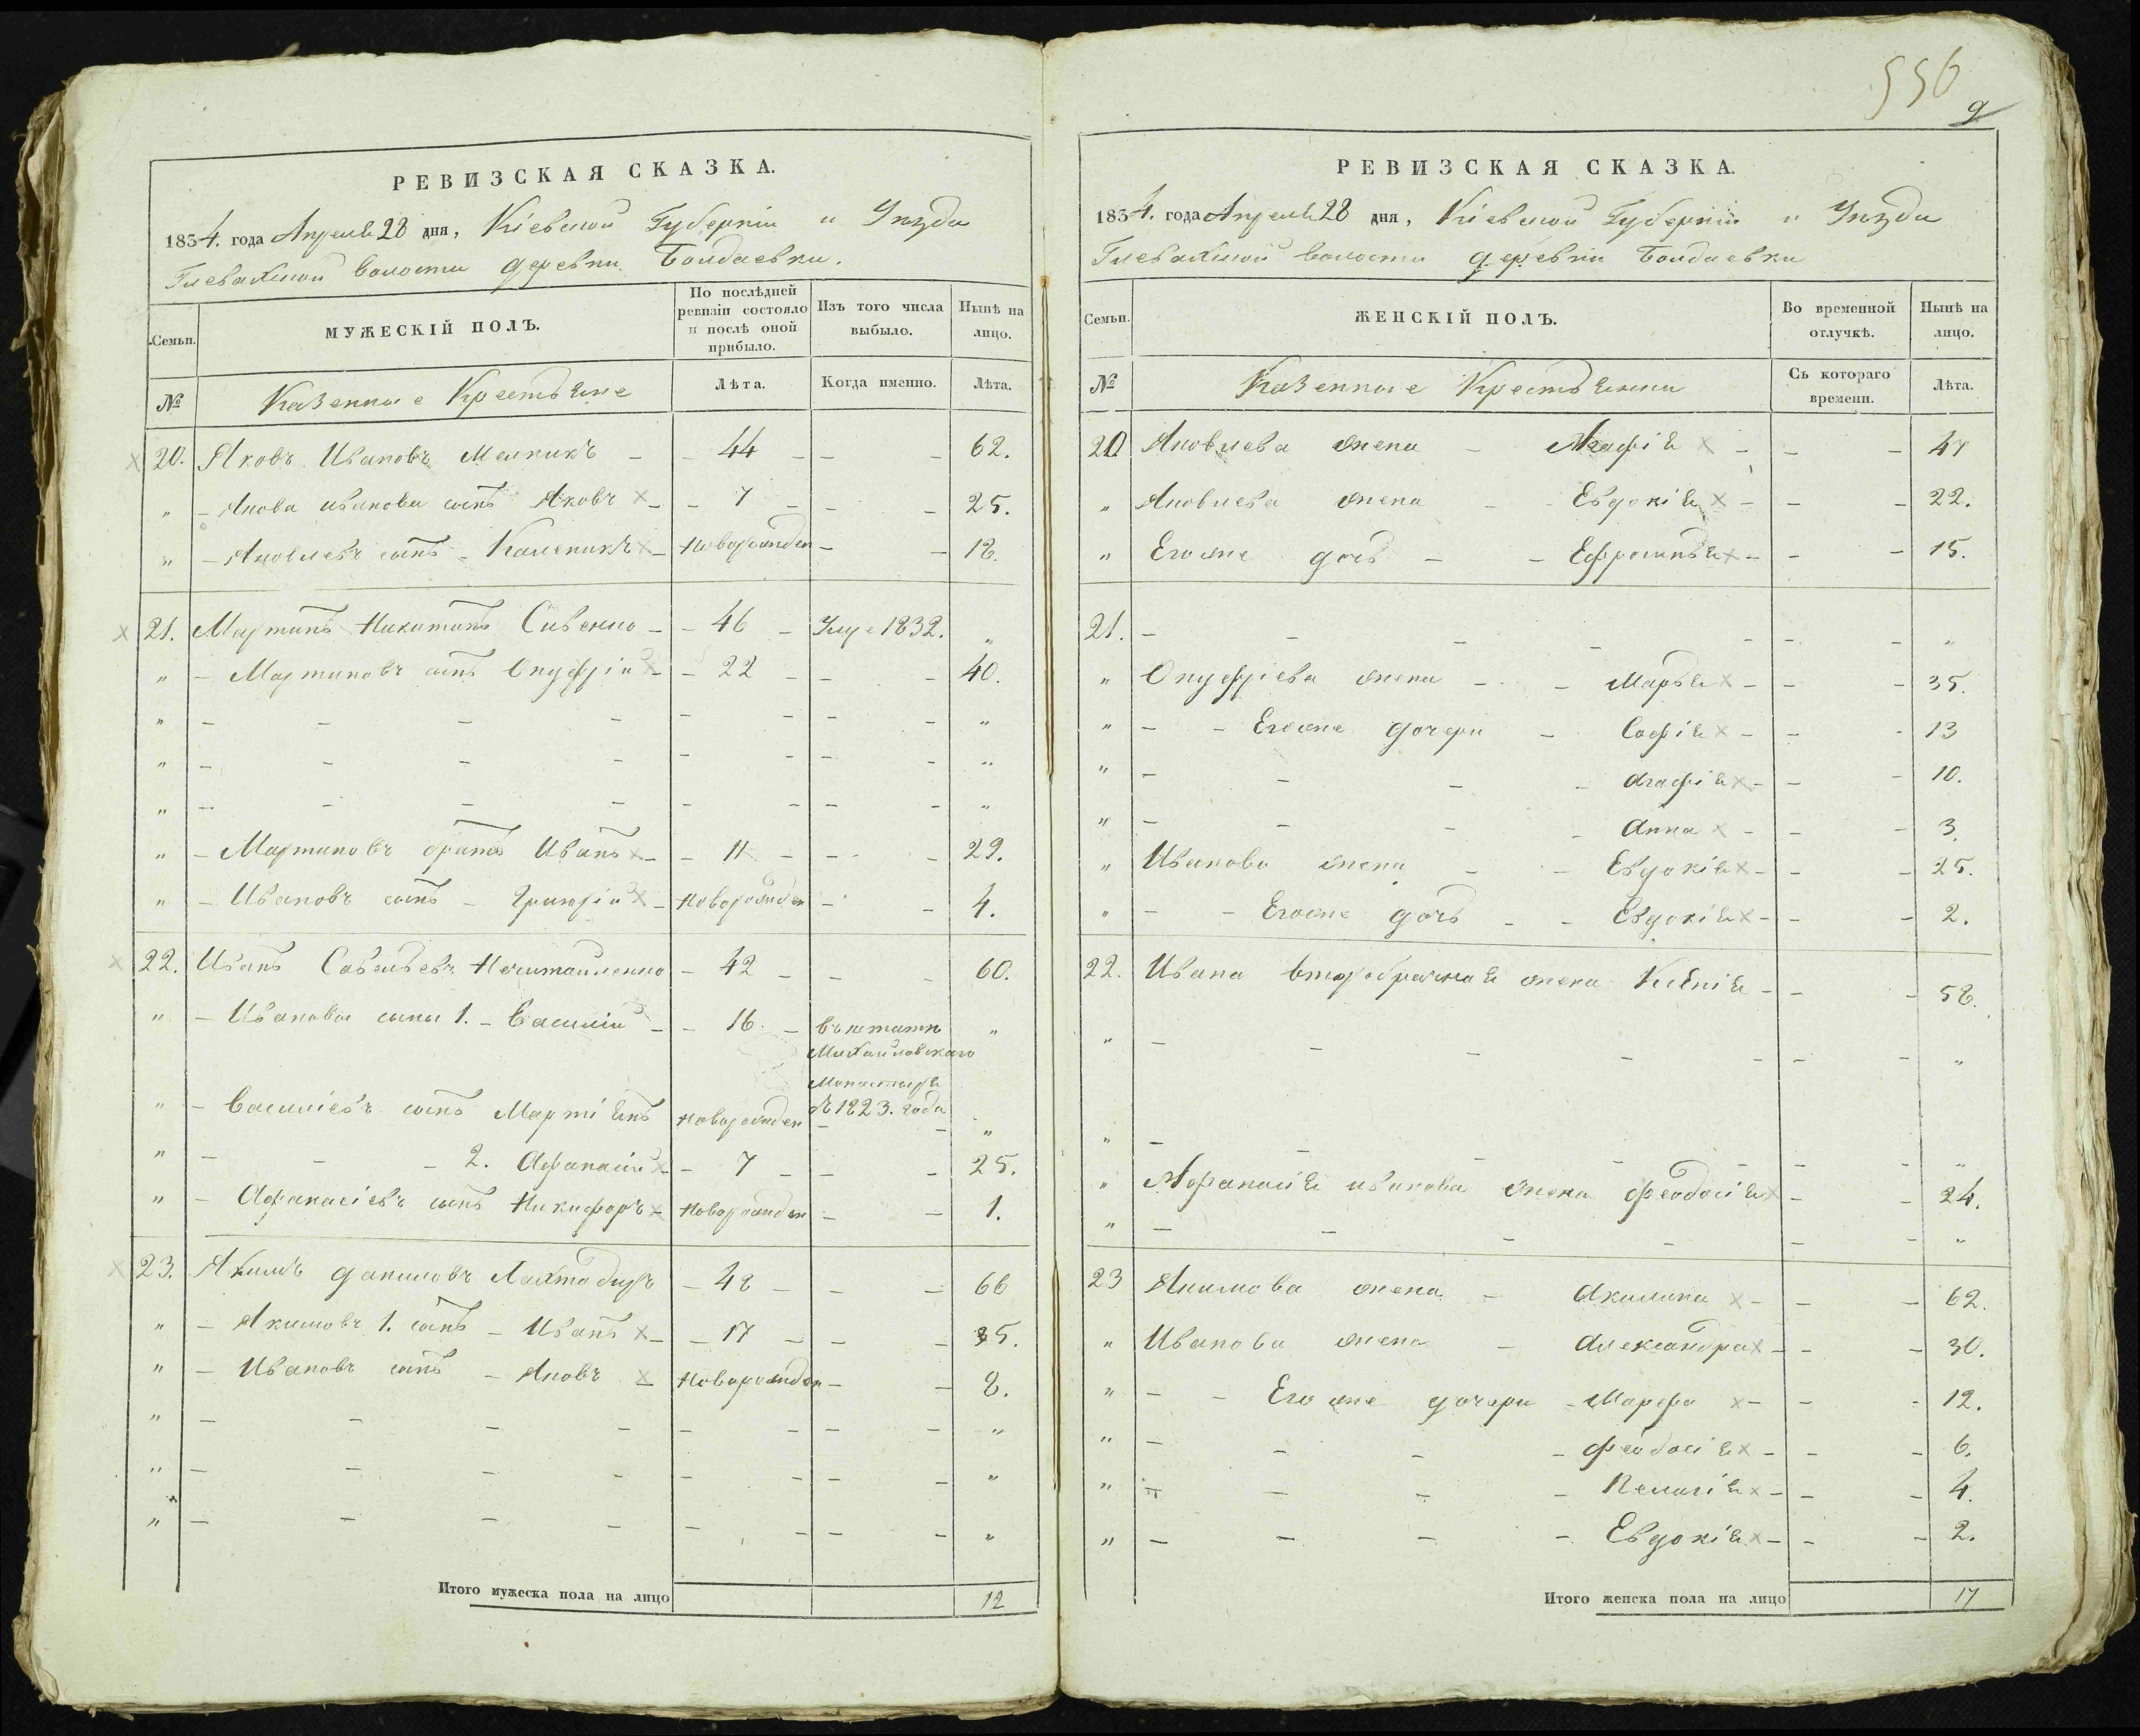 556
9
РЕВИЗСКАЯ СКАЗКА.
1834. года Апреля 28 дня, Кіевской Губерніи и Уѣзда
волости деревни
Семьи.
МУЖЕСКІЙ ПОЛЪ.
По послѣдней ревизіи состояло и послѣ оной прибыло.
Изъ того числа выбыло.
Нынѣ на лицо.
№
Казенные Крестьяне
Лѣта.
Когда именно.
Лѣта.
20. Яковъ Ивановъ Мелникъ - - 44 - - - 62.
" - Якова иванова сынъ Яковъ × - - 7 - - - 25.
" - Яковлевъ сынъ - Каленикъ × - Новорожден - - 18.
21. Мартинъ Никитинъ Сивенко - - 46 - Уме 1832. "
" - Мартиновъ сынъ Онуфрій × - - 22 - - - 40.
" - - - - - - - - "
" - - - - - - - - "
" - - - - - - - - "
" - Мартиновъ братъ Иванъ × - - 11 - - - 29.
" - Ивановъ сынъ - Григорій × - Новорожден - - 4.
22. Иванъ Савельевъ Нечитайленко - 42 - - - 60.
" - Ивановы сыны 1. - Василій - - 16. - въ штатъ "
Михайловскаго
Монастыря
съ 1823. года
" - Василіевъ сынъ Мартіянъ Новорожден - - "
" - - - 2. Афанасій × - 7 - - - 25.
" - Афанасіевъ сынъ Никифоръ × - Новорожден - - 1.
23. Акимъ Даниловъ - 48 - - - 66
" - Акимовъ 1. сынъ - Иванъ × - - 17 - - - 35.
" - Ивановъ сынъ - Яковъ × - Новорожден - - 8.
" - - - - - - - - "
" - - - - - - - - "
" - - - - - - - - "
Итого мужеска пола на лицо 12
РЕВИЗСКАЯ СКАЗКА.
1834. года Апреля 28 дня, Кіевской Губерніи и Уѣзда
волости деревни
Семьи.
ЖЕНСКІЙ ПОЛЪ.
Во временной отлучкѣ.
Нынѣ на лицо.
№
Казенные Крестьянки
Съ котораго времени.
Лѣта.
20 Яковлева жена - Агафія × - - - 47
" Яковлева жена - - Евдокія × - - - 22.
" Егоже дочь - - Ефросинья × - - - 15.
21. - - - - - - - "
" Онуфріева жена - - Марья × - - - 35.
" - - Егоже дочери - Софія × - - - 13
" - - - - Агафія × - - - 10.
" - - - - Анна × - - - 3.
" Иванова жена - - Евдокія × - - - 25.
" - - Егоже дочь - - Евдокія × - - - 2.
22. Ивана второбрачная жена Ксенія - - - 58.
" - - - - - - - "
" - - - - - - - "
" Афанасія иванова жена Феодосія × - - 24.
" - - - - - - "
23 Акимова жена - Акилина × - - - 62.
" Иванова жена - Александра × - - - 30.
" - - Егоже дочери - Марфа × - - - 12.
" - - - - Феодосія × - - - 6.
" - - - - Пелагія × - - - 4.
" - - - - Евдокія × - - - 2.
Итого женска пола на лицо 17